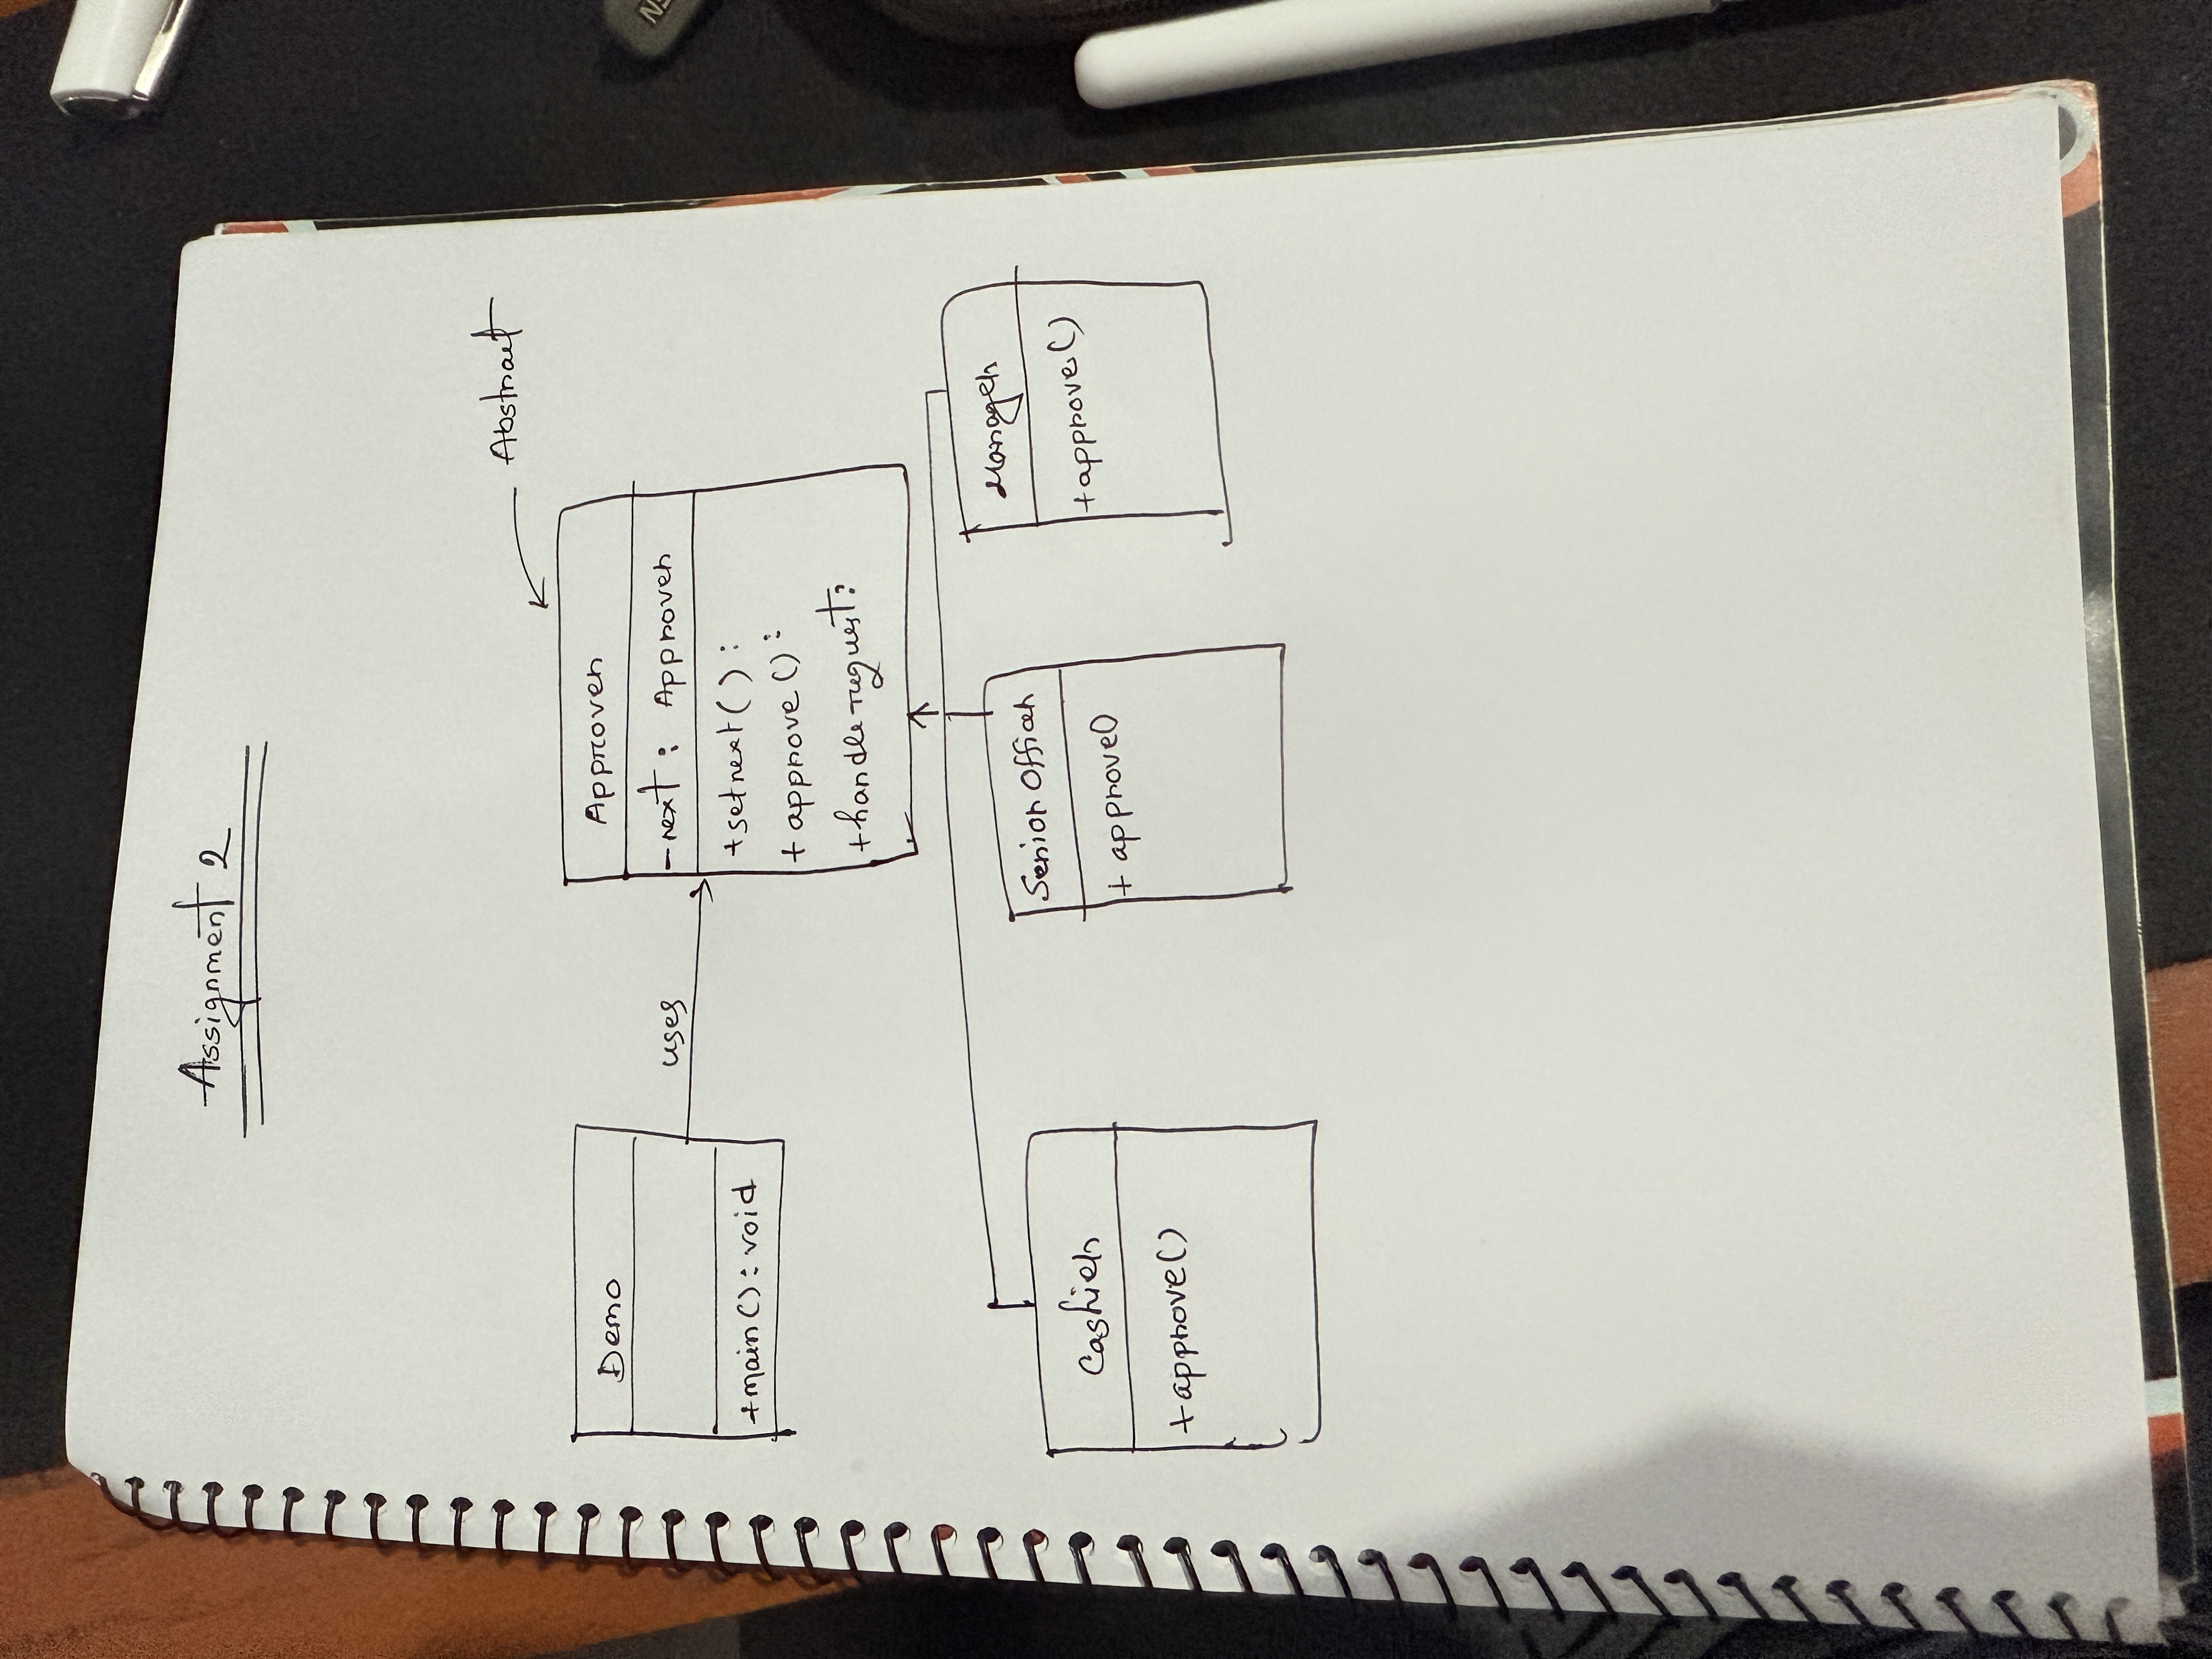 Assignment 2
Abstract
Demo
+main() : void
uses
Approver
- next : Approver
+ setnext() :
+ approve() :
+ handle request :
Cashier
+ approve()
Senior Officer
+ approve()
Manager
+ approve()